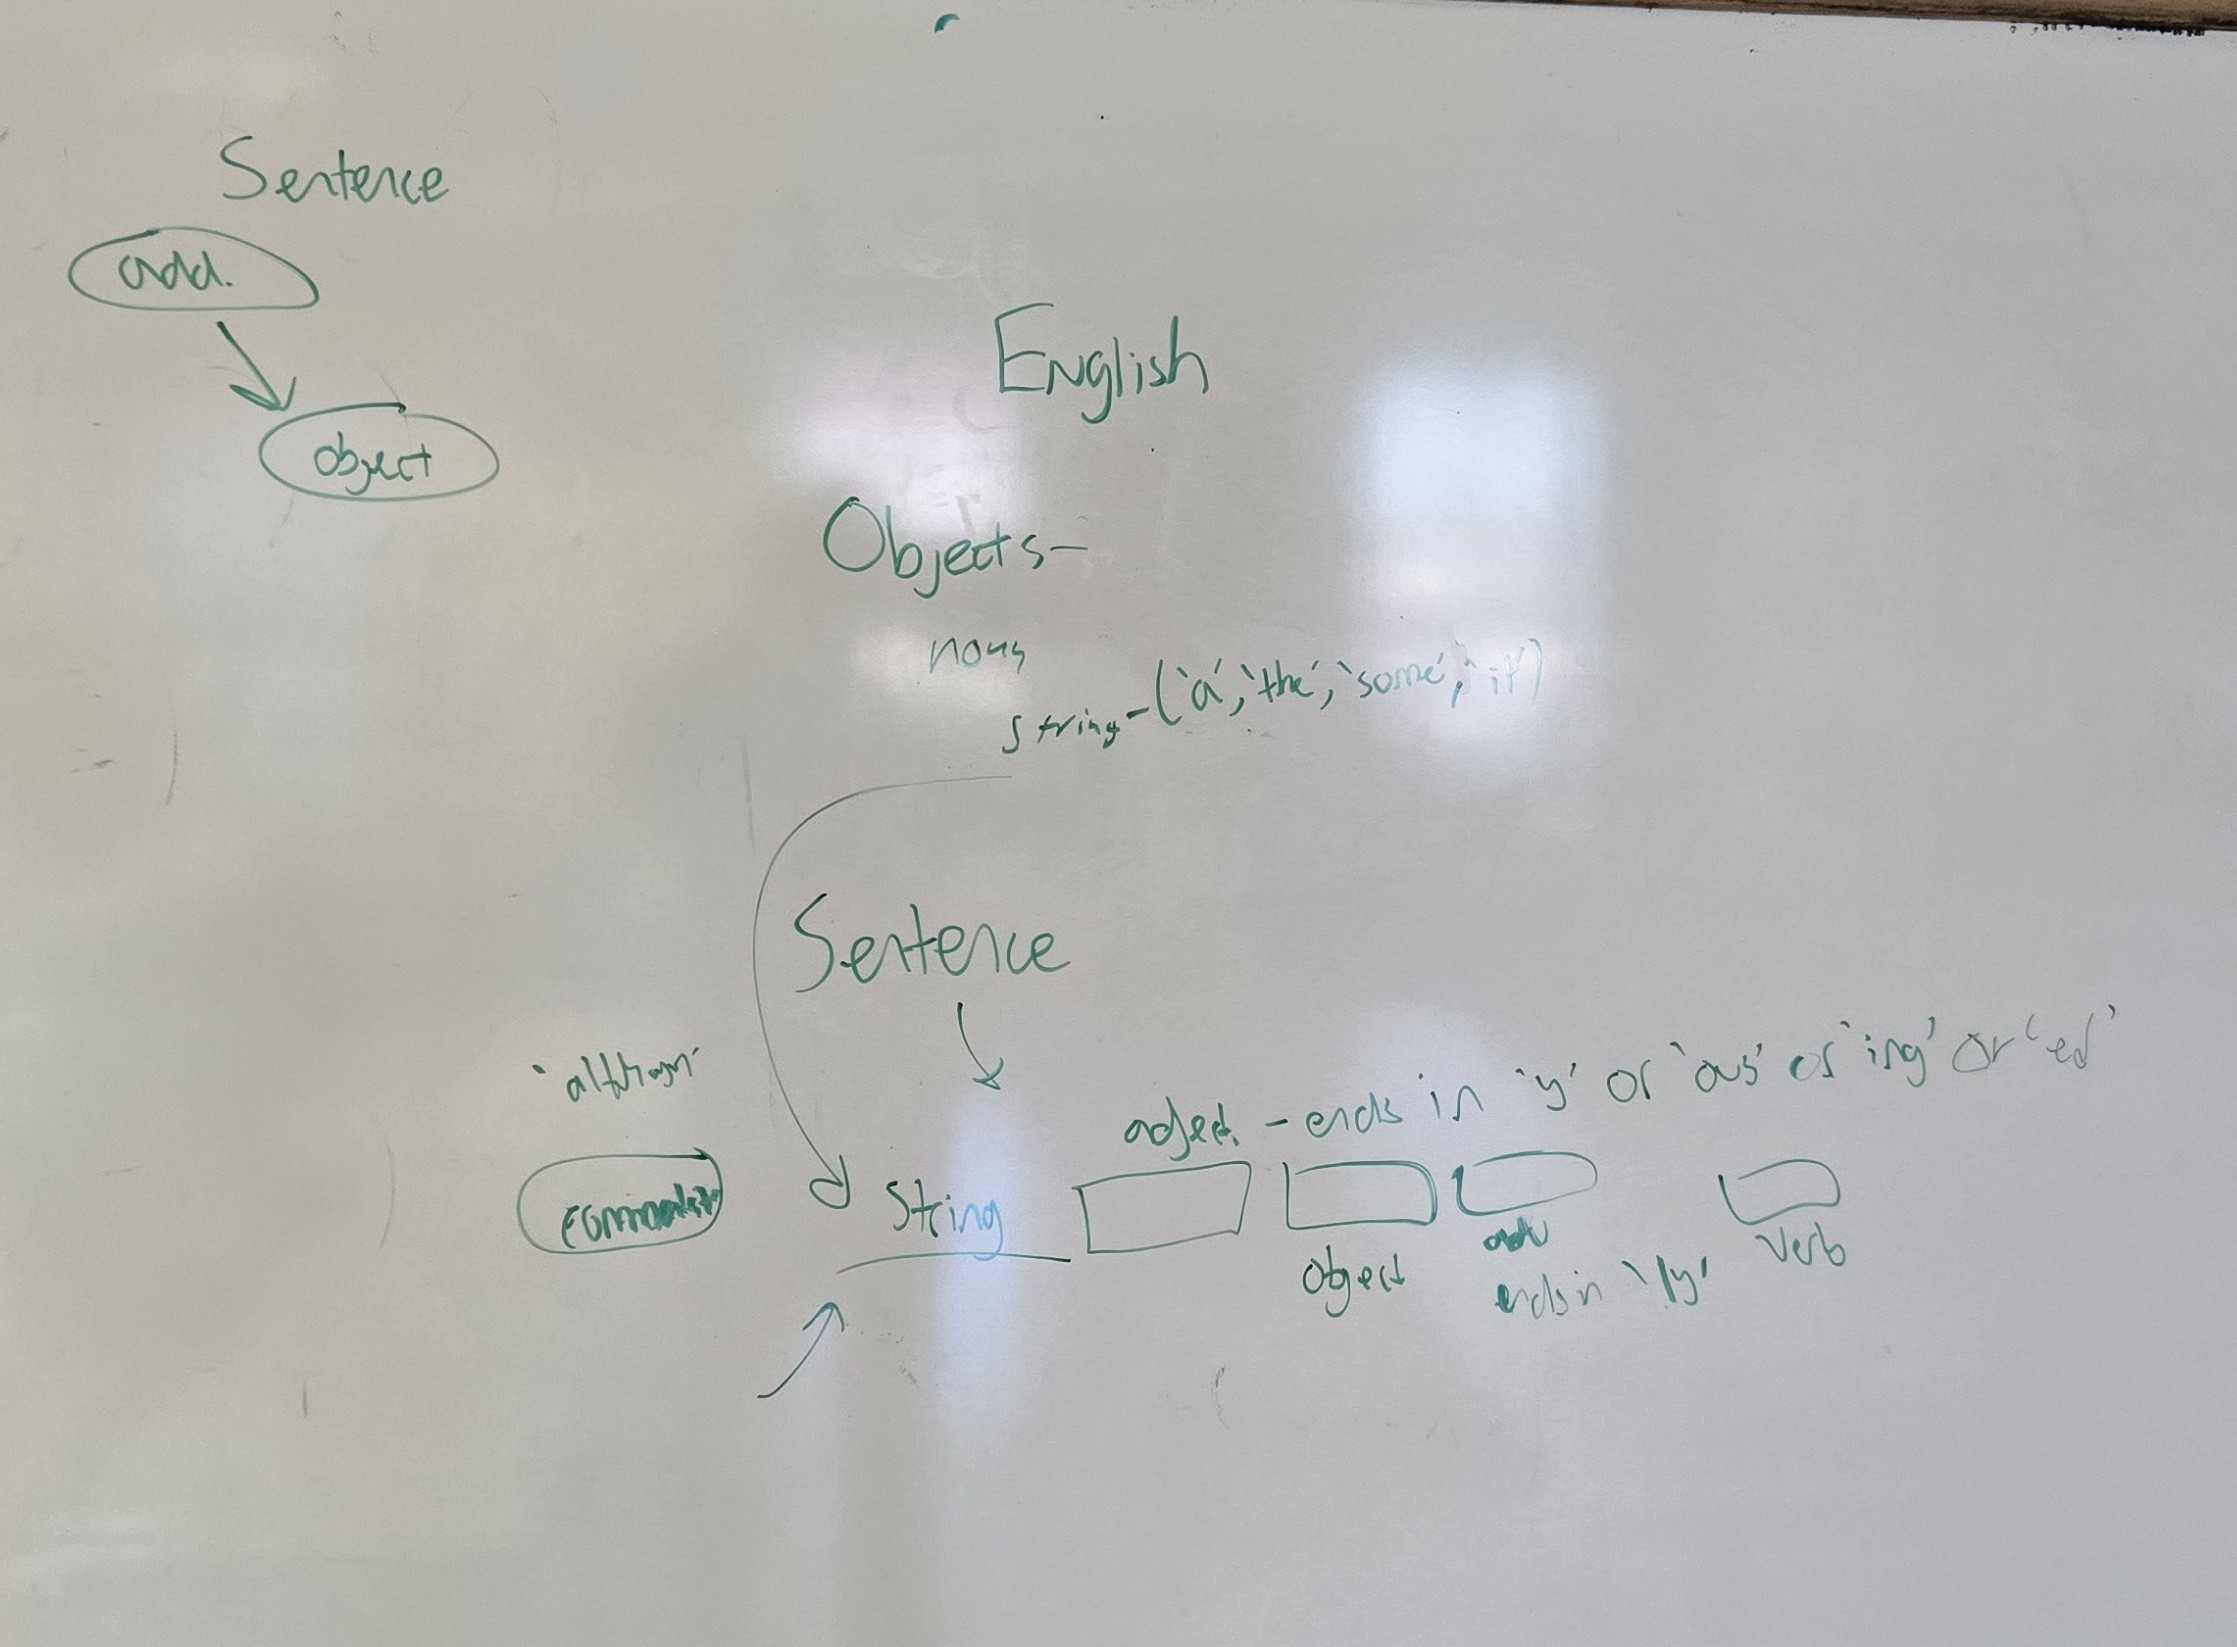 Sentence
add.
object
English
Objects-
string-(`a´,`the´,`some´,`it´)
Sentence
adject. - ends in `y' or `ous' or `ing' or `ed'
String
object
adv
ends in `ly'
verb